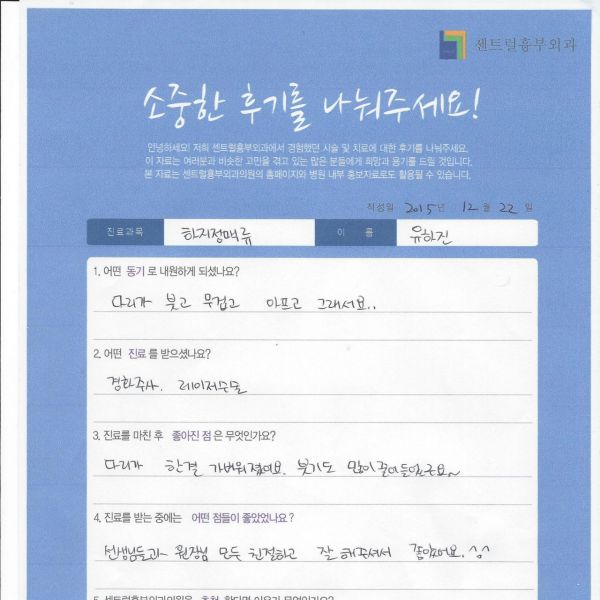 센트럴흉부외과
소중한 후기를 나눠주세요!
안녕하세요! 저희 센트럴흉부외과에서 경험했던 시술 및 치료에 대한 후기를 나눠주세요.
이 자료는 여러분과 비슷한 고민을 겪고 있는 많은 분들에게 희망과 용기를 드릴 것입니다.
본 자료는 센트럴흉부외과의원의 홈페이지와 병원 내부 홍보자료로도 활용될 수 있습니다.
작성일 2015년 12월 22일
진료과목 하지정맥류 이 름 유하진
1. 어떤 동기로 내원하게 되셨나요?
다리가 붓고 무겁고 아프고 그래서요..
2. 어떤 진료를 받으셨나요?
경화주사. 레이저수술
3. 진료를 마친 후 좋아진 점은 무엇인가요?
다리가 한결 가벼워졌어요. 붓기도 많이 줄어들었구요~
4. 진료를 받는 중에는 어떤 점들이 좋았었나요?
선생님들과 원장님 모두 친절하고 잘 해주셔서 좋았어요. ^^
5. 센트럴흉부외과의원을 추천 한다면 이유가 무엇인가요?